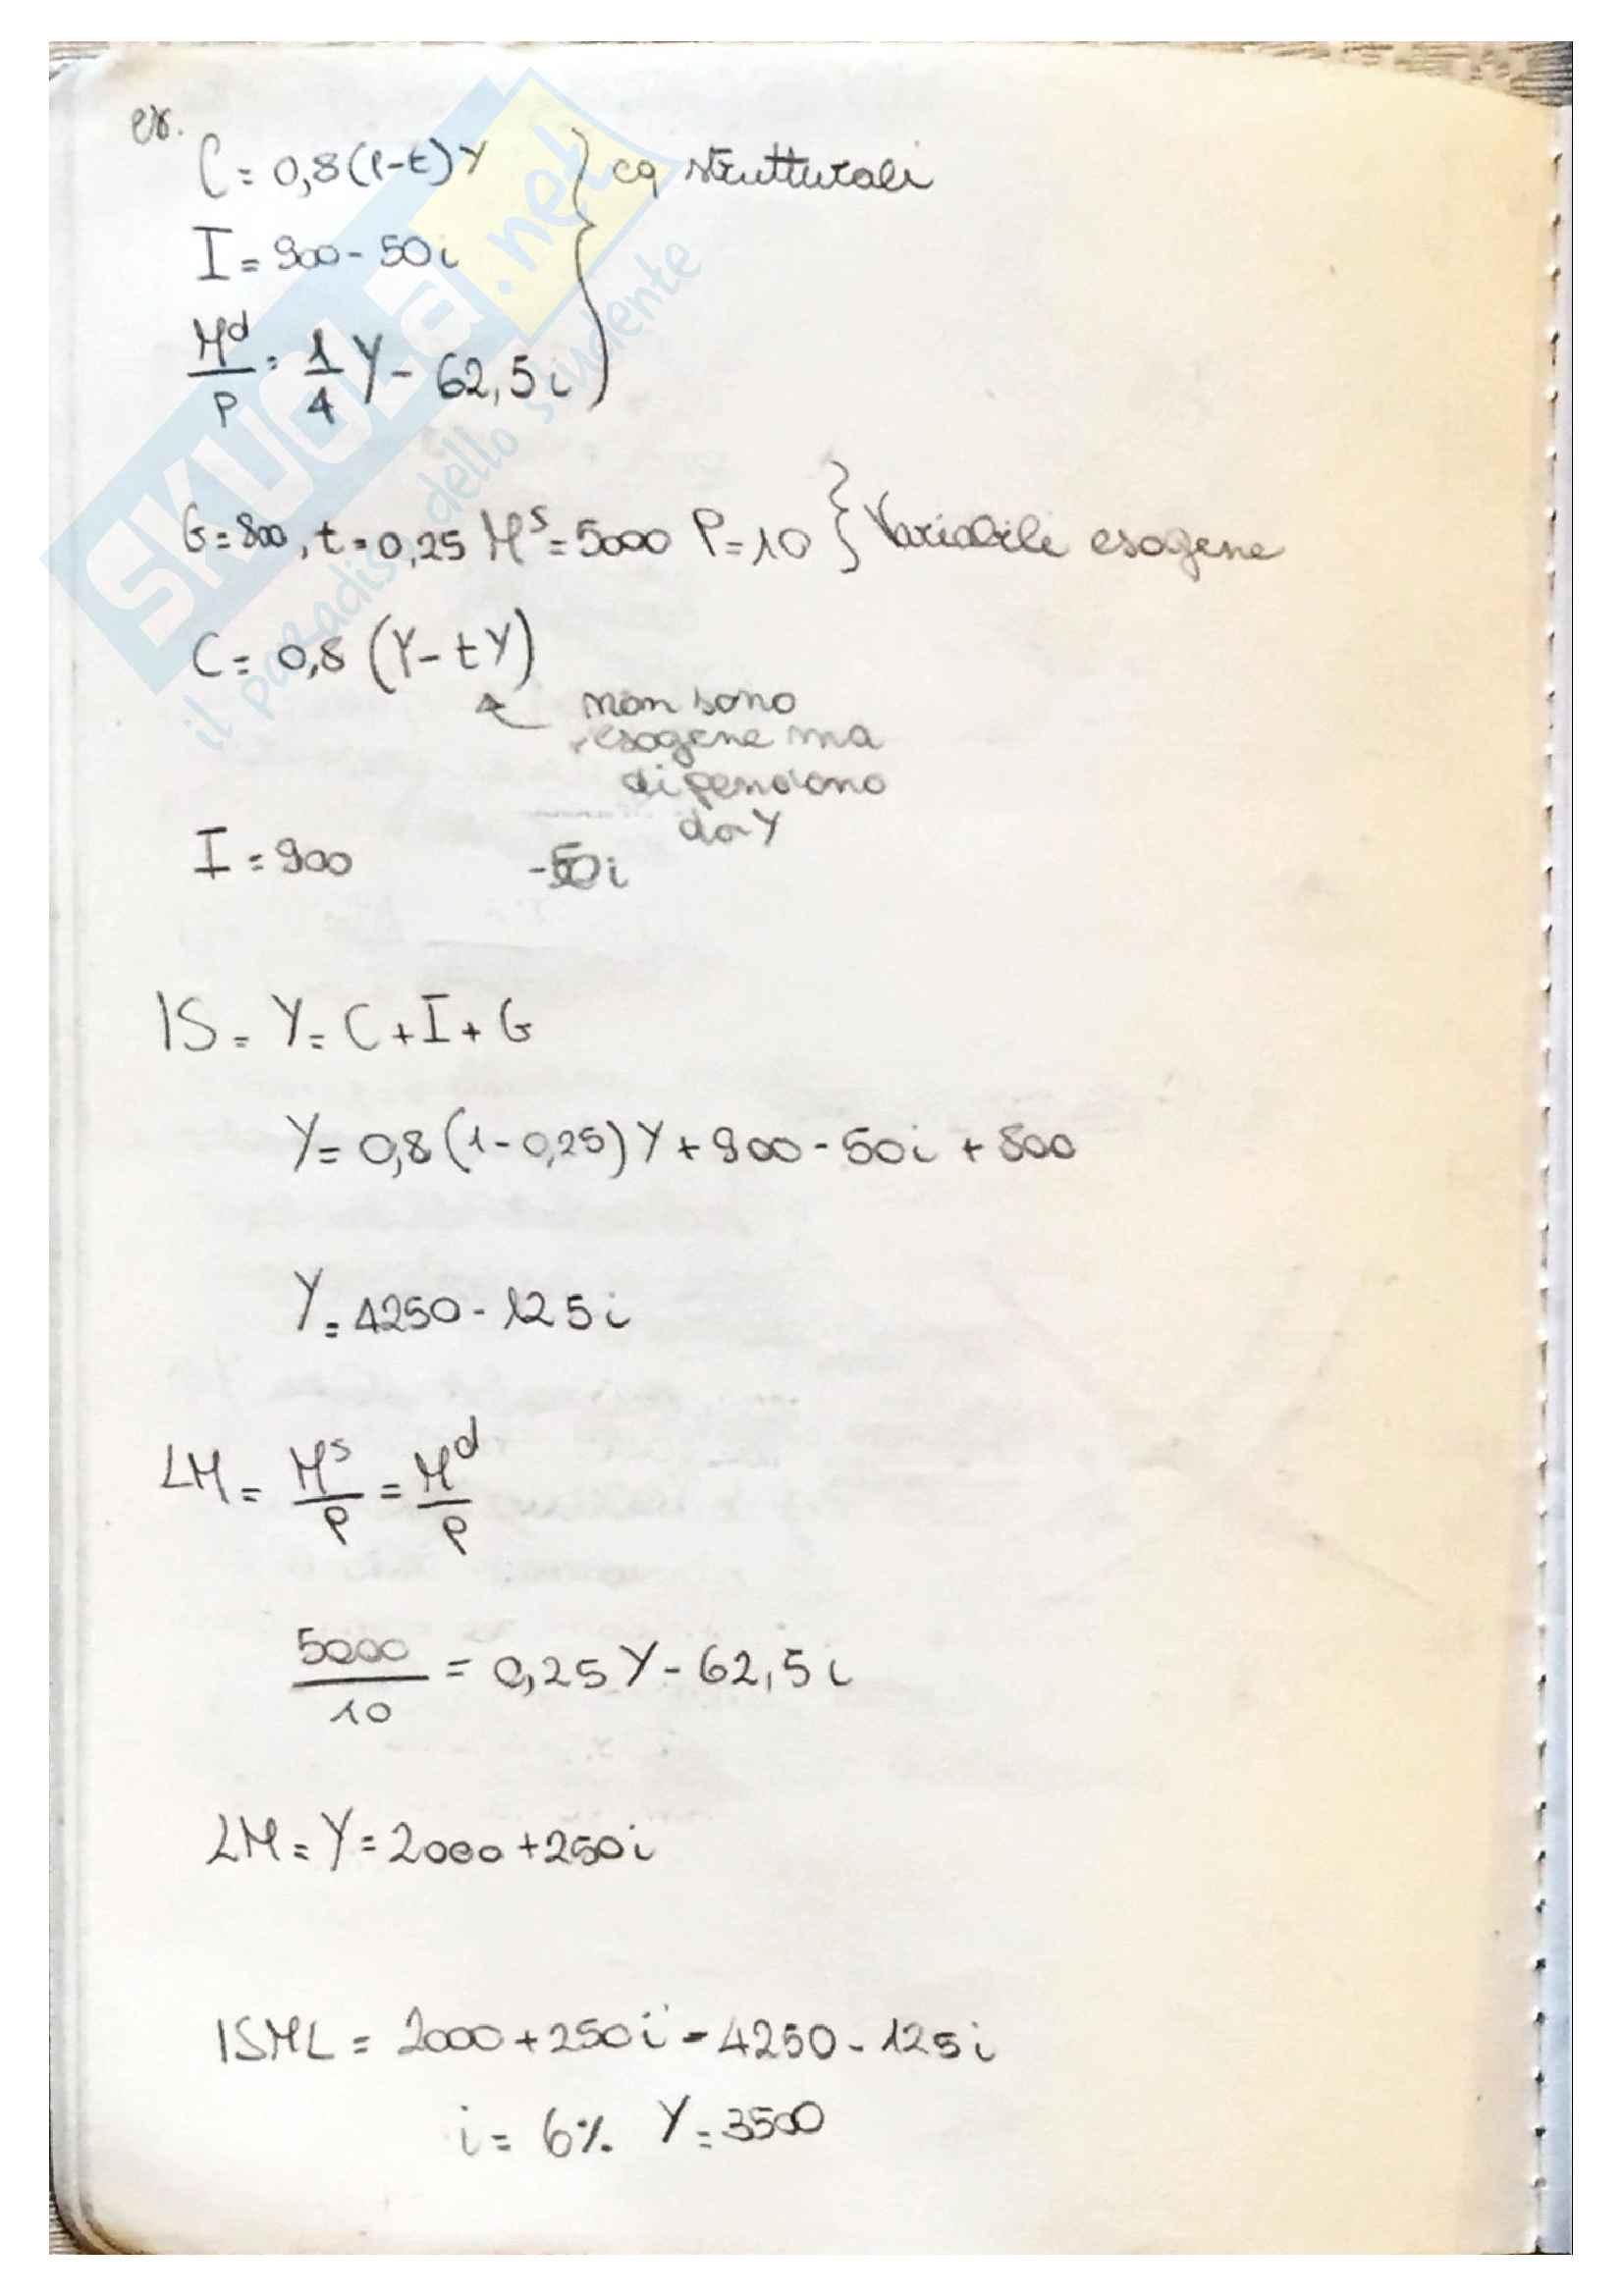 es.
C = 0,8(1-t)Y } eq strutturali
I = 900 - 50i
M^d/P = 1/4 Y - 62,5i
G = 800, t = 0,25 M^s = 5000 P = 10 } Variabili esogene
C = 0,8 (Y - tY)
non sono
esogene ma
dipendono
da Y
I = 900 -50i
IS = Y = C + I + G
Y = 0,8 (1 - 0,25) Y + 900 - 50i + 800
Y = 4250 - 125i
LM = M^s/P = M^d/P
5000/10 = 0,25Y - 62,5i
LM = Y = 2000 + 250i
ISML = 2000 + 250i = 4250 - 125i
i = 6% Y = 3500
SKUOLa.net
il paradiso dello studente